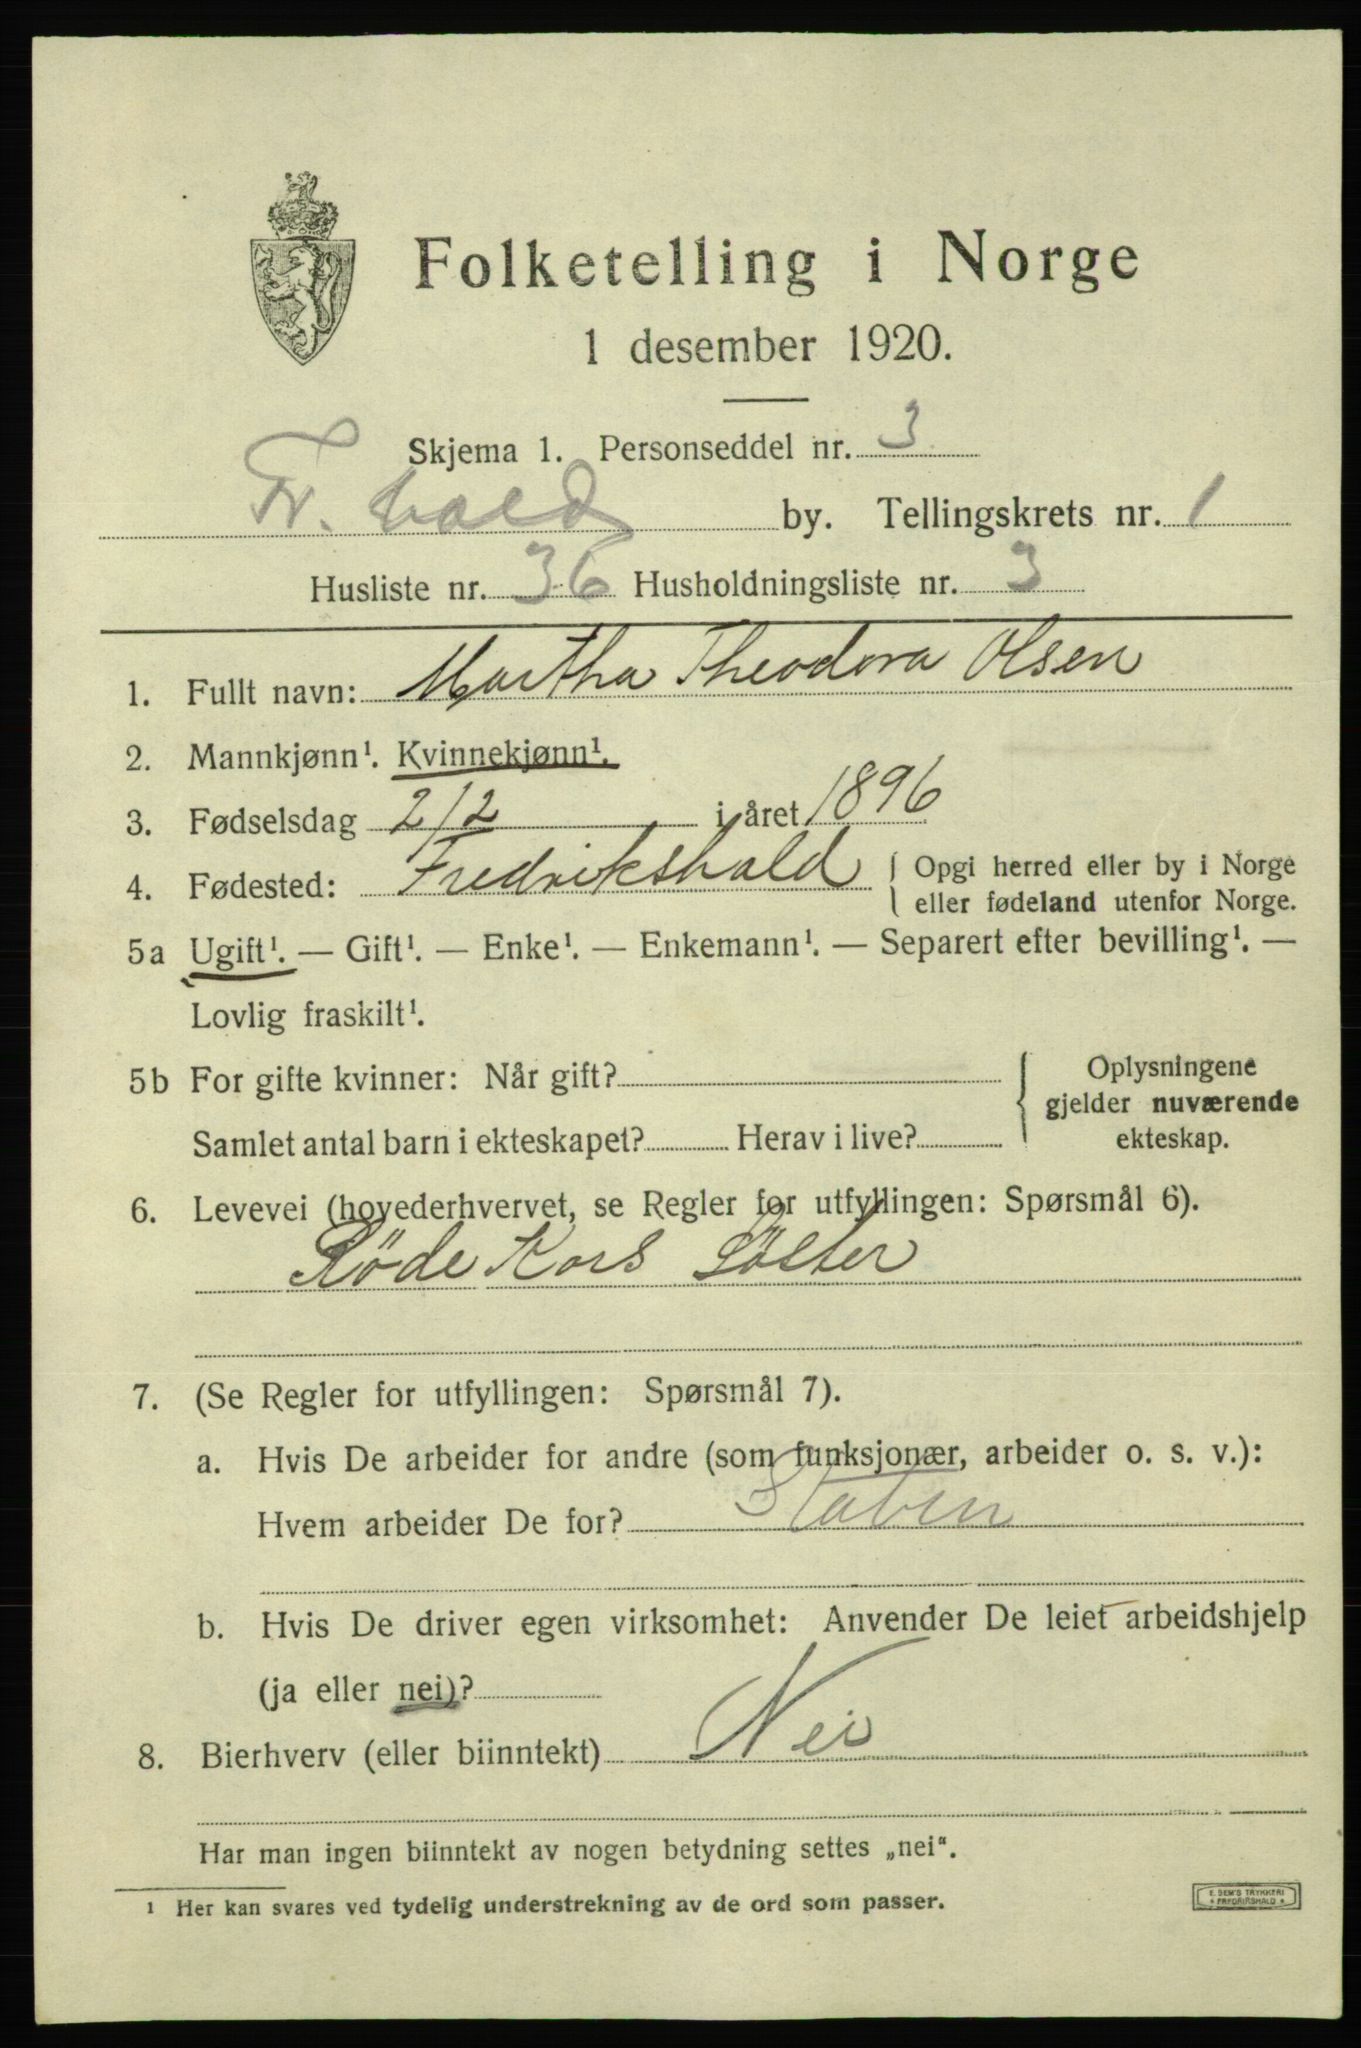 Folketelling i Norge
1 desember 1920.
Skjema 1. Personseddel nr. 3
Fr.hald by. Tellingskrets nr. 1
Husliste nr. 36 Husholdningsliste nr. 3
1. Fullt navn: Martha Theodora Olsen
2. Mannkjønn¹. Kvinnekjønn¹.
3. Fødselsdag 2/2 i året 1896
4. Fødested: Fredrikshald { Opgi herred eller by i Norge
eller fødeland utenfor Norge.
5a Ugift¹. — Gift¹. — Enke¹. — Enkemann¹. — Separert efter bevilling¹. —
Lovlig fraskilt¹.
5b For gifte kvinner: Når gift? { Oplysningene
gjelder nuværende
Samlet antal barn i ekteskapet? Herav i live? ekteskap.
6. Levevei (hovederhvervet, se Regler for utfyllingen: Spørsmål 6).
Röde Kors Söster
7. (Se Regler for utfyllingen: Spørsmål 7).
a. Hvis De arbeider for andre (som funksjonær, arbeider o. s. v.):
Hvem arbeider De for? Staten
b. Hvis De driver egen virksomhet: Anvender De leiet arbeidshjelp
(ja eller nei)?
8. Bierhverv (eller biinntekt) Nei
Har man ingen biinntekt av nogen betydning settes „nei“.
¹ Her kan svares ved tydelig understrekning av de ord som passer.
E. SEM'S TRYKKERI
* FREDRIKSHALD *